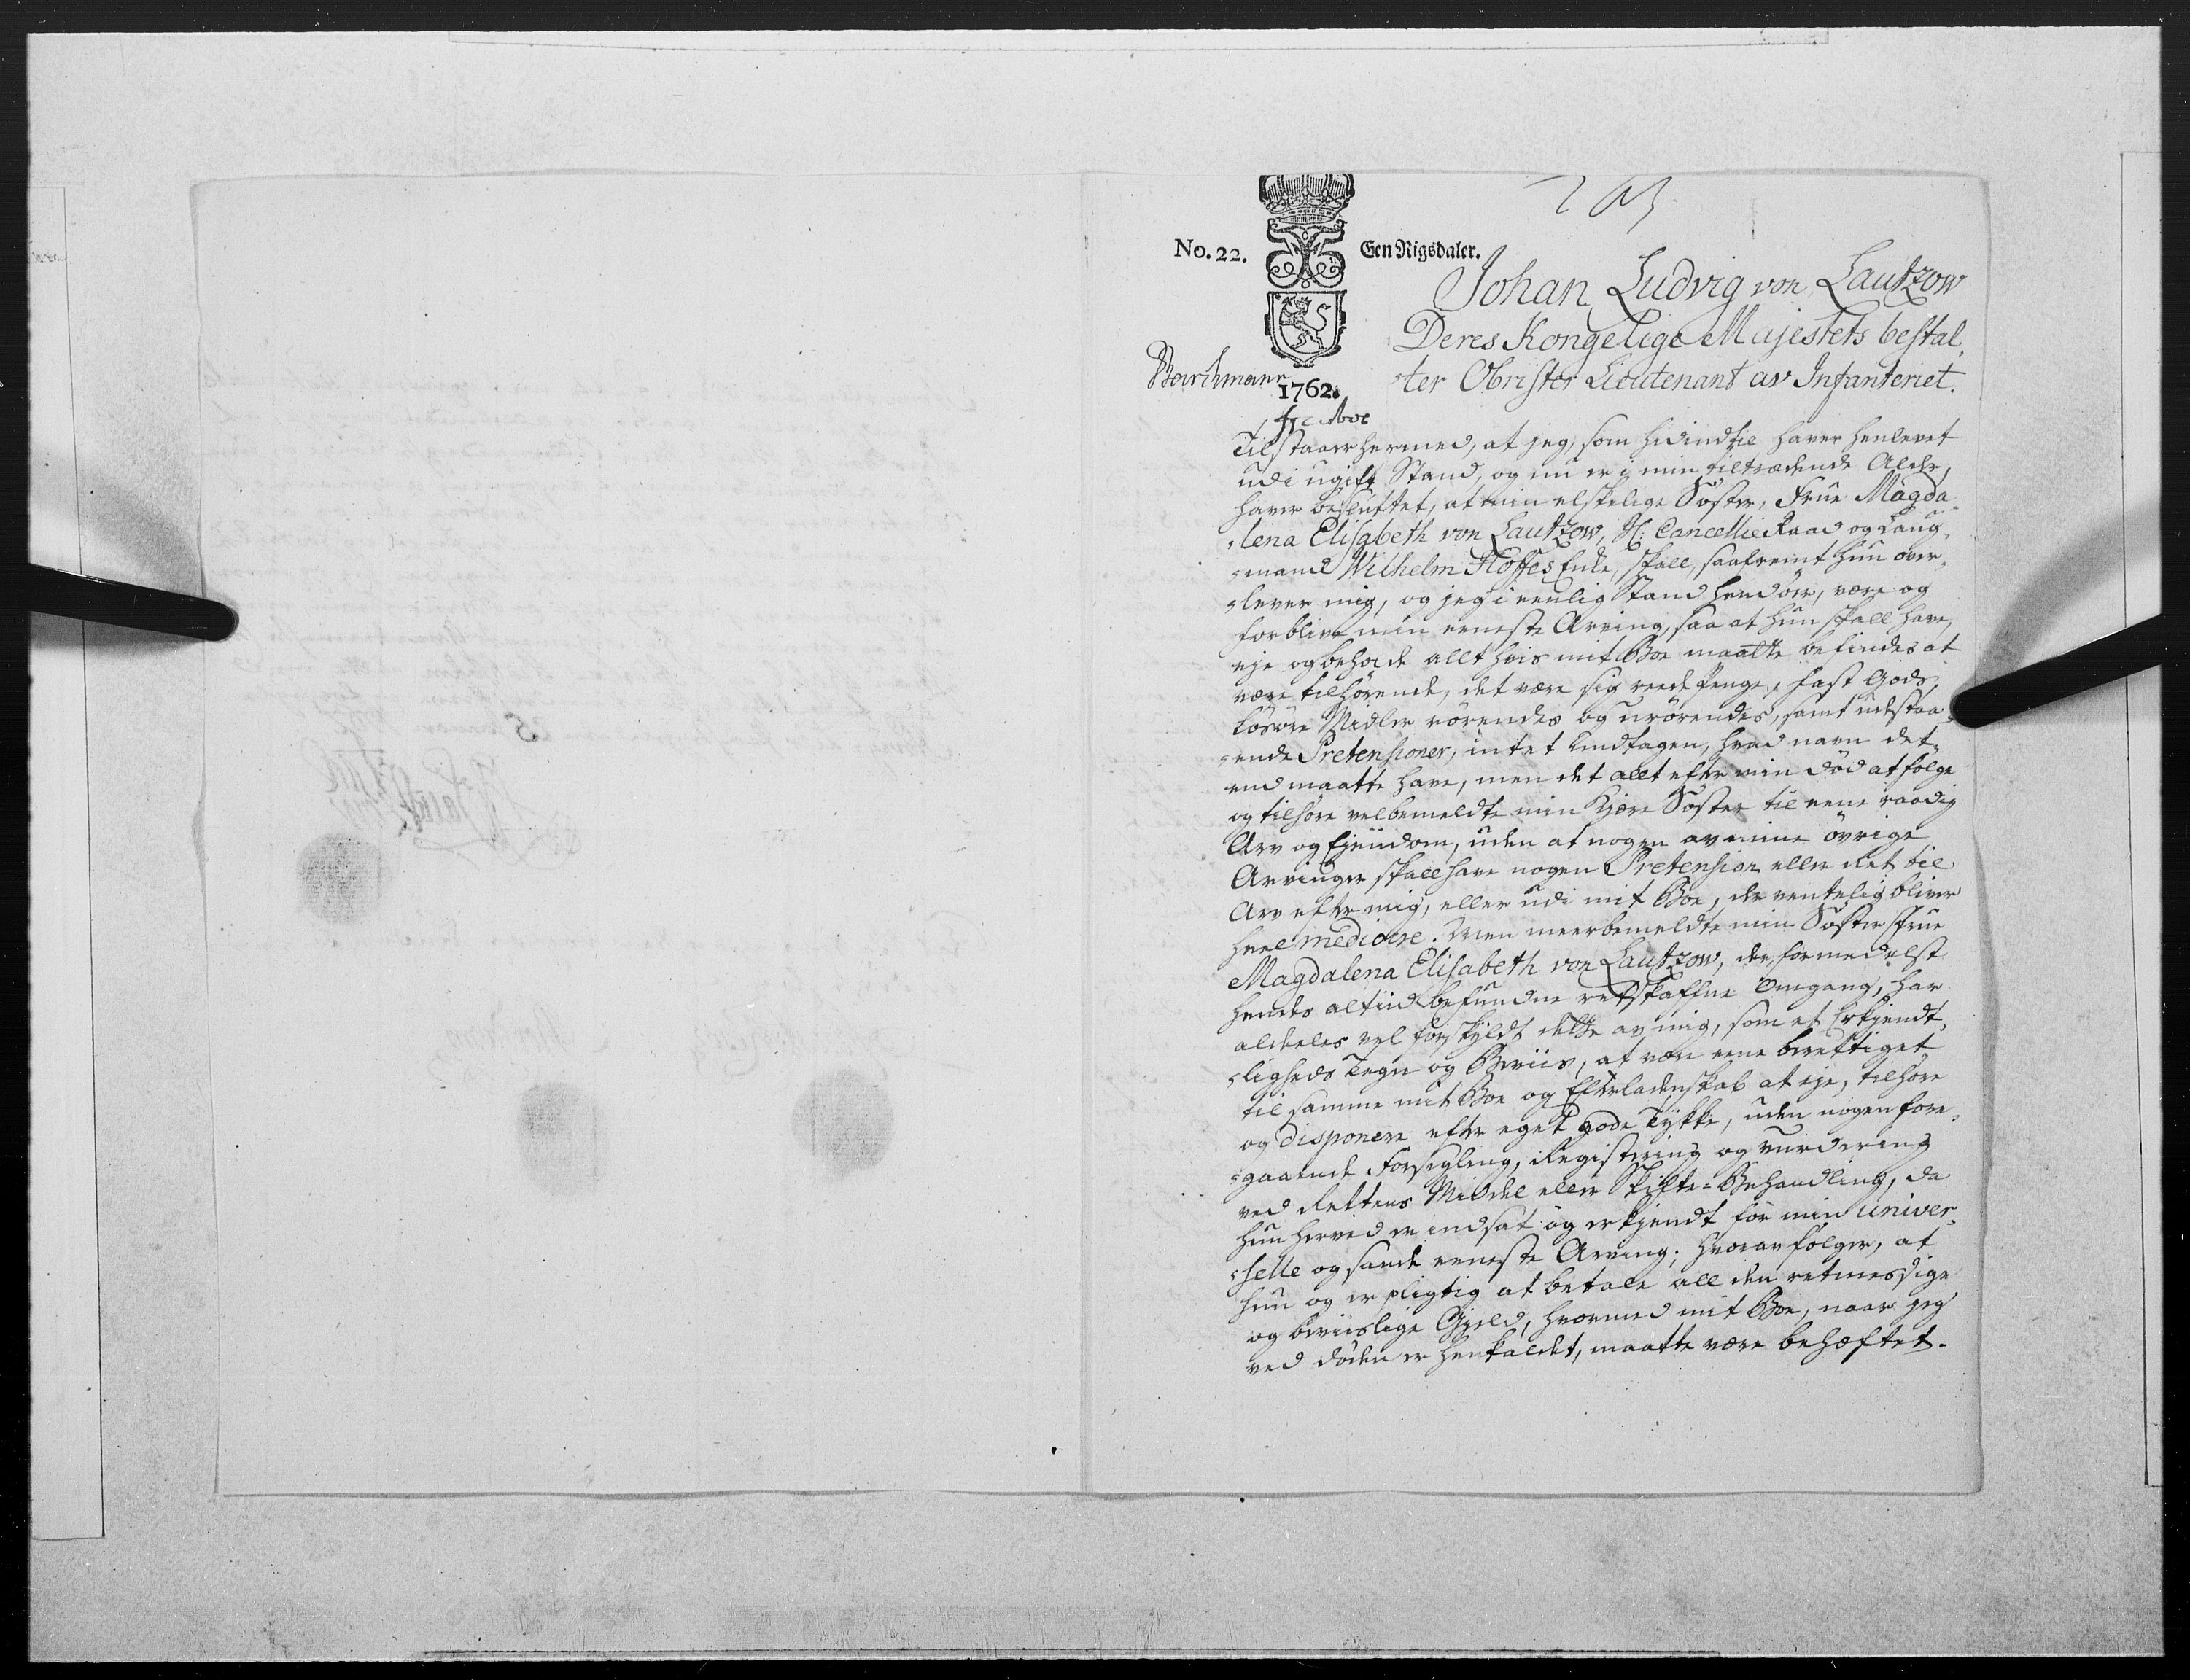 No. 22.
Een Rigsdaler.
1762.
Johan Ludvig von Lautzow
Deres Kongelige Majestets bestal„
„ter Obrister Lieutenant av Infanteriet.
Tilstaaer hermed, at jeg, som hidindtil haver henlevet
udi ugift Stand, og nu er i min tiltrædende Alder,
haver besluttet, at min elskelige Söster, Frue Magda„
„lena Elisabeth von Lautzow, Hr: Cancellie Raad og Laug„
„mand Wilhelm Hoffes Enke, skall, saafremt hun over„
„lever mig, og jeg i eenlig Stand hendöer, være og
forblive min eeneste Arving, saa at hun skall have,
eje og beholde allt hvis mit Boe maatte befindes at
være tilhörende, det være sig reede Penge, fast Gods,
Lösöre Midler rörendes og urörendes, samt udestaa„
„ende Pretensioner, intet undtagen, hvad navn det„
end maatte have, men det allt efter min död at fölge
og tilhöre velbemeldte min kjere Söster til eene raadig
Arv og Ejendom, uden at nogen av mine övrige
Arvinger skall have nogen Pretension eller Ret til
Arv efter mig, eller udi mit Boe, der ventelig bliver
heel mediocre. Men meerbemeldte min Söster Frue
Magdalena Elisabeth von Lautzow, der formedelst
hendes altiid befundne retskaffne Omgang, har
aldeeles vel forskyldt dette av mig, som et Erkjendt„
„ligheds Tegn og Beviis, at være eene berettiget
til samme mit Boe og Efterladenskab at eje, tilhöre
og disponere efter eget gode Tykke, uden nogen fore„
„gaaende Forsegling, Registering og Vurdering
ved Rettens Middel eller Skifte-Behandling, da
hun herved er indsat og erkjendt for min univer„
„selle og sande eeneste Arving; hvorav fölger, at
hun og er pligtig at betale all den retmessige
og beviislige Gjeld, hvormed mit Boe, naar jeg
ved döden er henkaldet, maatte være behæftet.